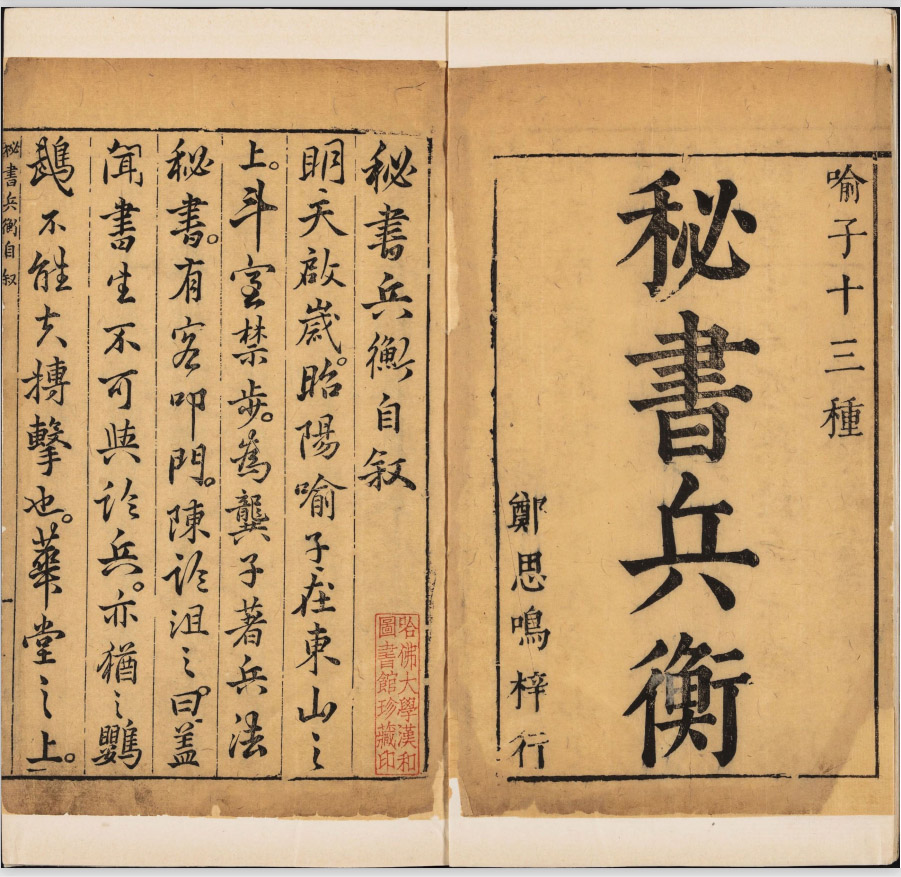 喻子十三種
秘書兵衡
鄭思鳴梓行
秘書兵衡自叙
明天啟歲。眙陽喻子在東山之
上。斗室禁步。爲龔子著兵法
秘書。有客叩門。陳論沮之曰。蓋
聞書生不可與論兵。亦猶之鸚
鵡不能去搏擊也。華堂之上。
秘書兵衡自叙
哈佛大學漢和
圖書館珍藏印